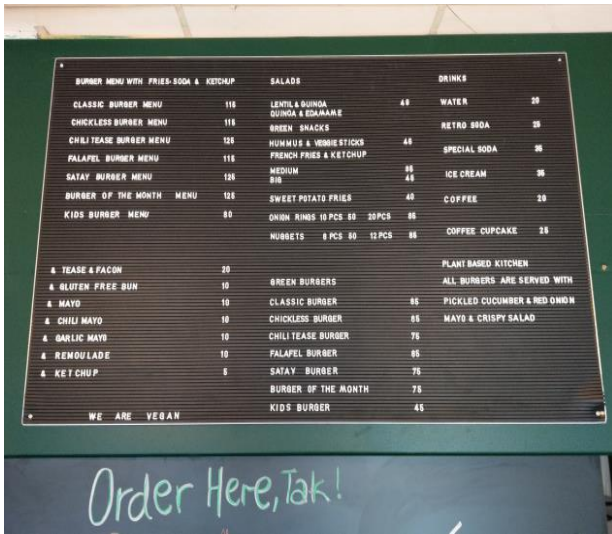 BURGER MENU WITH FRIES-SODA & KETCHUP
CLASSIC BURGER MENU 115
CHICKLESS BURGER MENU 115
CHILI TEASE BURGER MENU 125
FALAFEL BURGER MENU 115
SATAY BURGER MENU 125
BURGER OF THE MONTH MENU 125
KIDS BURGER MENU 80
& TEASE & FACON 20
& GLUTEN FREE BUN 10
& MAYO 10
& CHILI MAYO 10
& GARLIC MAYO 10
& REMOULADE 10
& KETCHUP 5
WE ARE VEGAN
SALADS
LENTIL & QUINOA 45
QUINOA & EDAMAME
GREEN SNACKS
HUMMUS & VEGGIE STICKS 45
FRENCH FRIES & KETCHUP
MEDIUM 35
BIG 45
SWEET POTATO FRIES 40
ONION RINGS 10 PCS 50 20 PCS 85
NUGGETS 6 PCS 50 12 PCS 85
GREEN BURGERS
CLASSIC BURGER 65
CHICKLESS BURGER 65
CHILI TEASE BURGER 75
FALAFEL BURGER 65
SATAY BURGER 75
BURGER OF THE MONTH 75
KIDS BURGER 45
DRINKS
WATER 20
RETRO SODA 25
SPECIAL SODA 35
ICE CREAM 35
COFFEE 20
COFFEE CUPCAKE 25
PLANT BASED KITCHEN
ALL BURGERS ARE SERVED WITH
PICKLED CUCUMBER & RED ONION
MAYO & CRISPY SALAD
Order Here, Tak!